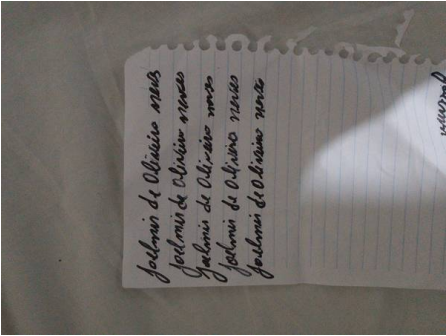 Joelmir de Oliveira neves
Joelmir de Oliveira neves
Joelmir de Oliveira neves
Joelmir de Oliveira neves
Joelmir de Oliveira neves